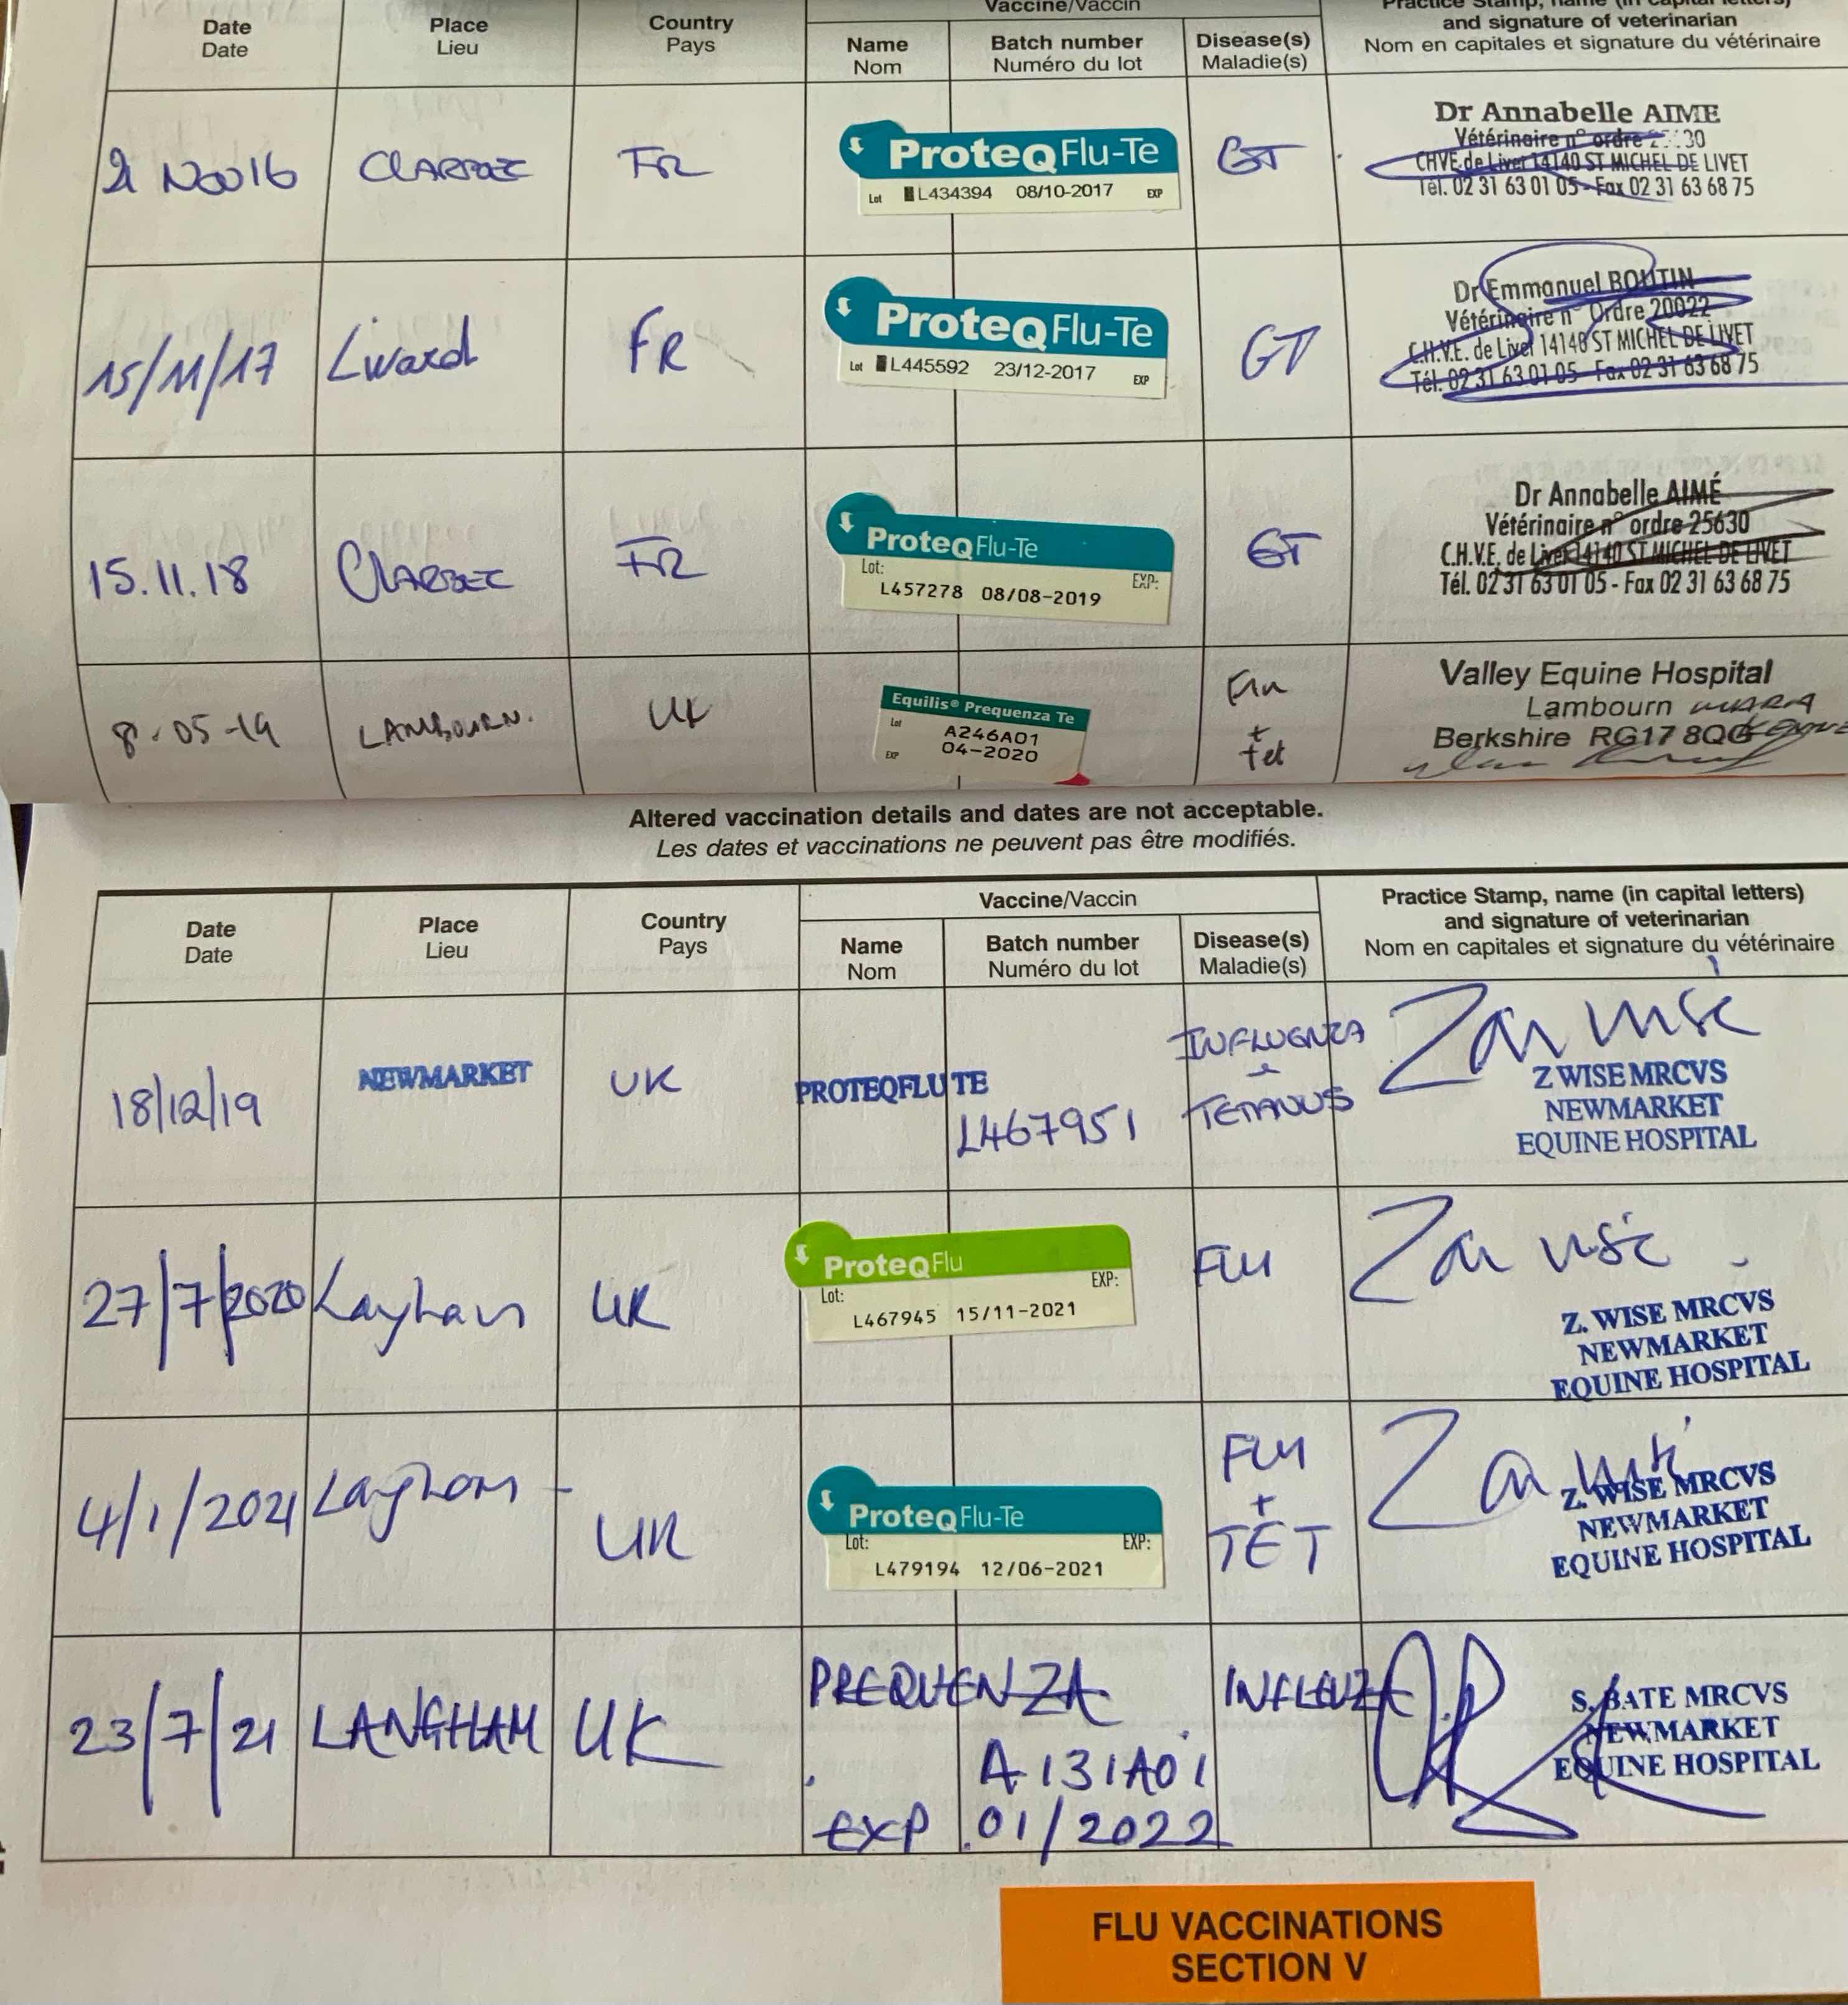 Vaccine/Vaccin
Date
Date
Place
Lieu
Country
Pays
Name
Nom
Batch number
Numéro du lot
Disease(s)
Maladie(s)
and signature of veterinarian
Nom en capitales et signature du vétérinaire
CLARBEC
FR
ProteQ Flu-Te
Lot L434394 08/10-2017 EXP
GT
Dr Annabelle AIME
Vétérinaire n° ordre
CHVE de Livet 14140 ST MICHEL DE LIVET
Tél. 02 31 63 01 05 - Fax 02 31 63 68 75
15/11/17
FR
ProteQ Flu-Te
Lot L445592 23/12-2017 EXP
GT
Dr Emmanuel BOUTIN
Vétérinaire n° Ordre 20022
C.H.V.E. de Livet 14140 ST MICHEL DE LIVET
Tél. 02 31 63 01 05 - Fax 02 31 63 68 75
15.11.18
CLARBEC
FR
ProteQ Flu-Te
Lot: EXP:
L457278 08/08-2019
GT
Dr Annabelle AIMÉ
Vétérinaire n° ordre 25630
C.H.V.E. de Livet 14140 ST MICHEL DE LIVET
Tél. 02 31 63 01 05 - Fax 02 31 63 68 75
8.05-19
LAMBOURN.
UK
Equilis® Prequenza Te
Lot A246A01
EXP 04-2020
+
tet
Valley Equine Hospital
Lambourn
Berkshire RG17 8QG
Altered vaccination details and dates are not acceptable.
Les dates et vaccinations ne peuvent pas être modifiés.
Date
Date
Place
Lieu
Country
Pays
Vaccine/Vaccin
Name
Nom
Batch number
Numéro du lot
Disease(s)
Maladie(s)
Practice Stamp, name (in capital letters)
and signature of veterinarian
Nom en capitales et signature du vétérinaire
18/12/19
NEWMARKET
UK
PROTEQFLU TE
L467951
INFLUENZA
TETANUS
Z WISE MRCVS
NEWMARKET
EQUINE HOSPITAL
27/7/2020
UK
ProteQ Flu
Lot: EXP:
L467945 15/11-2021
FLU
Z. WISE MRCVS
NEWMARKET
EQUINE HOSPITAL
4/1/2021
UK
ProteQ Flu-Te
Lot: EXP:
L479194 12/06-2021
FLU
+
TET
Z. WISE MRCVS
NEWMARKET
EQUINE HOSPITAL
23/7/21
LANGHAM
UK
PREQUENZA
A131A01
EXP 01/2022
S. BATE MRCVS
NEWMARKET
EQUINE HOSPITAL
FLU VACCINATIONS
SECTION V